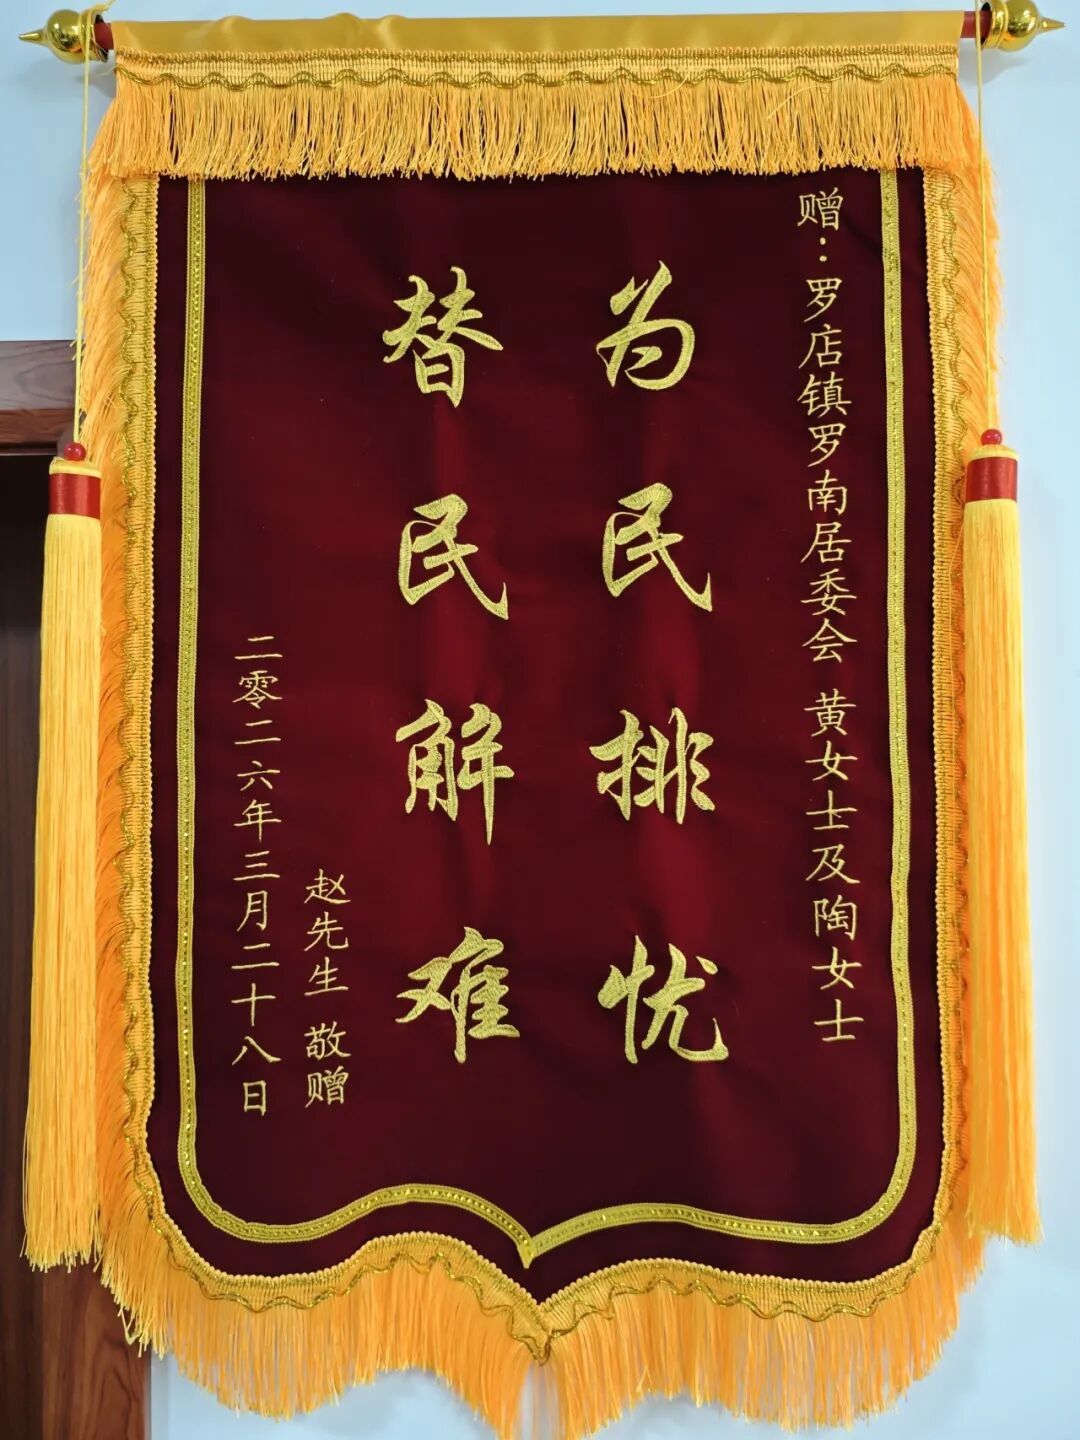 赠：罗店镇罗南居委会 黄女士及陶女士
为民排忧
替民解难
赵先生 敬赠
二零二六年三月二十八日